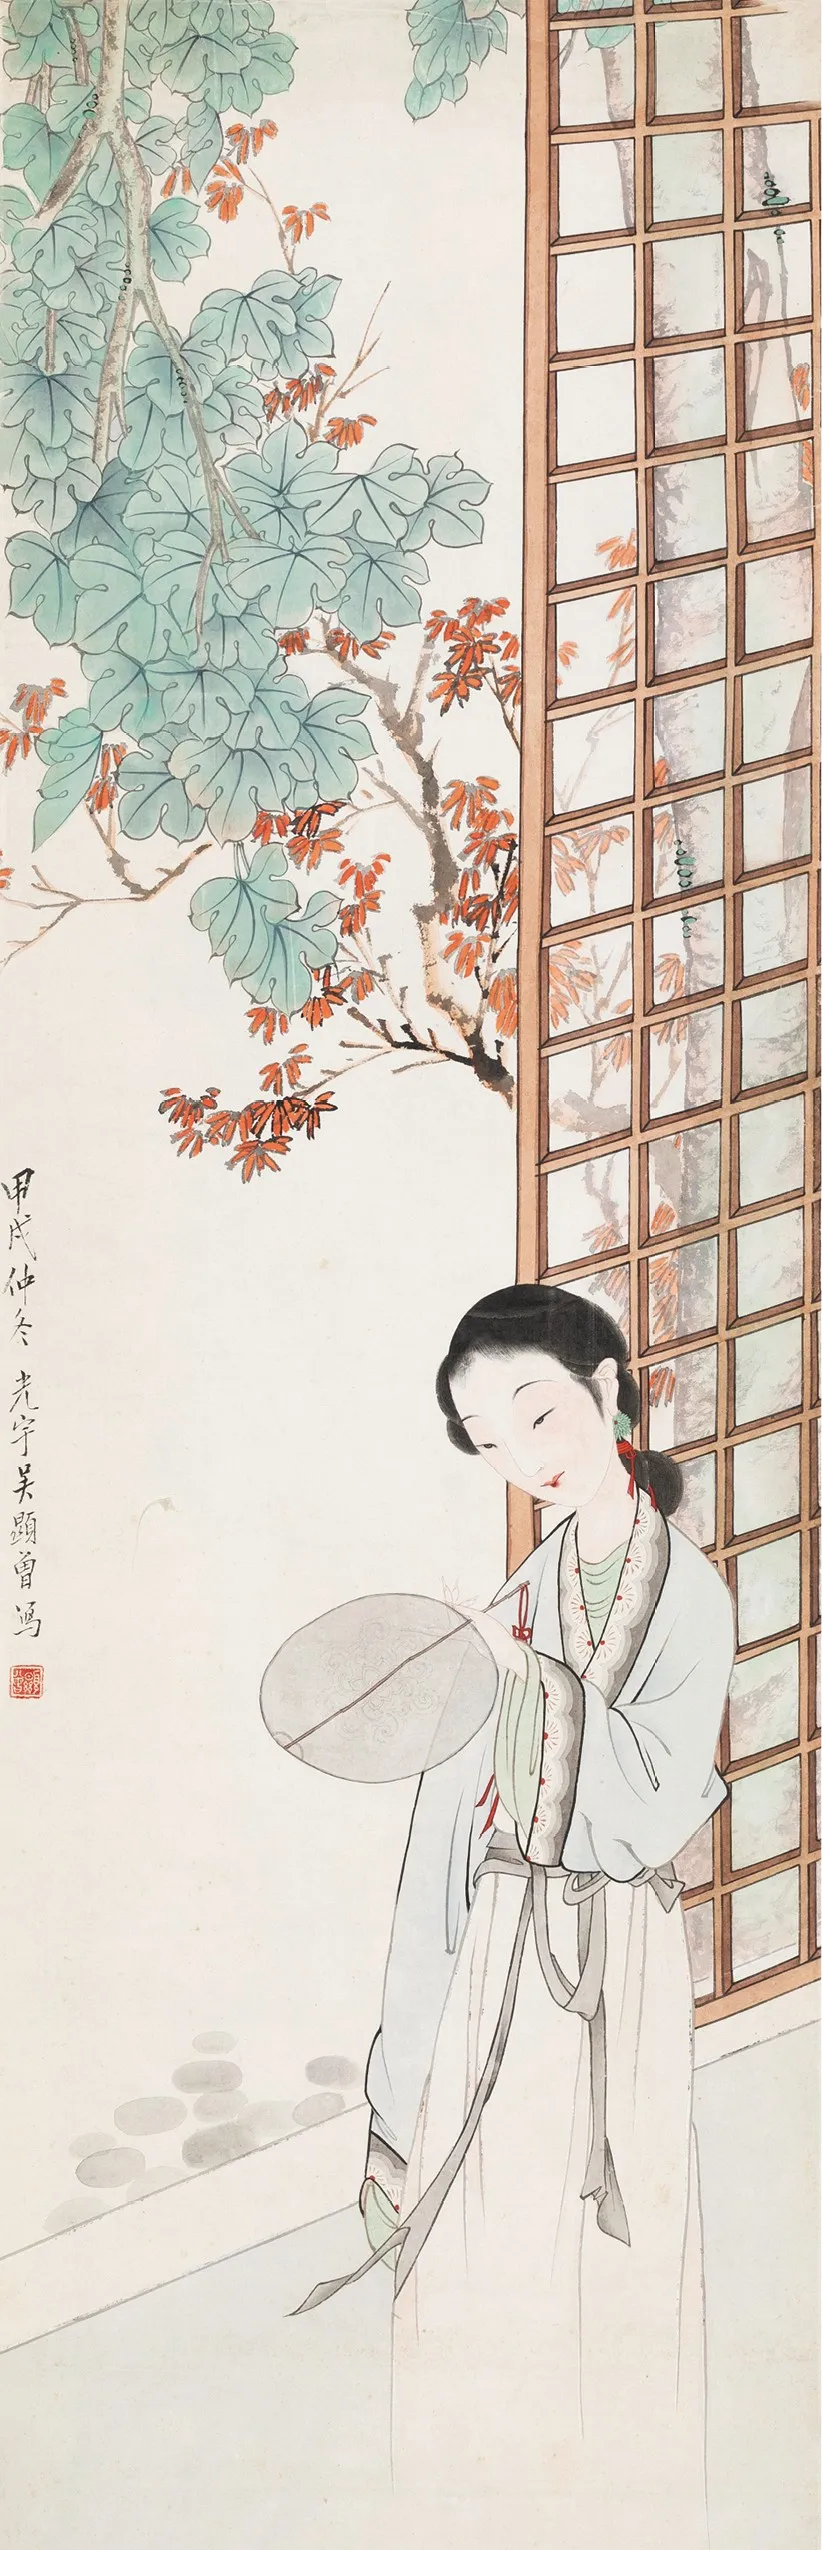 甲戌仲冬光宇吴顯曾寫
顯曾